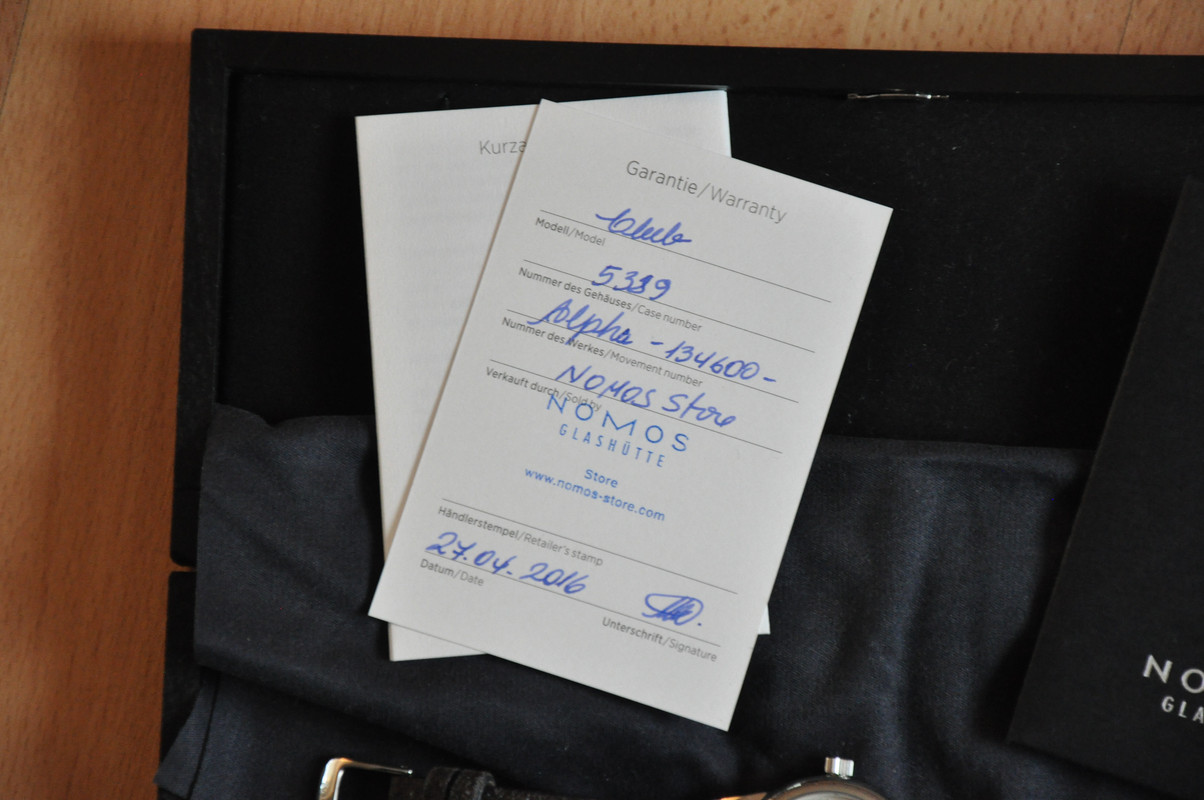 Kurza
Garantie/Warranty
Club
Modell/Model
5389
Nummer des Gehäuses/Case number
Alpha - 134600-
Nummer des Werkes/Movement number
NOMOS Store
Verkauft durch/Sold by
NOMOS
GLASHÜTTE
Store
www.nomos-store.com
Händlerstempel/Retailer's stamp
27.04.2016
Datum/Date
Unterschrift/Signature
NO
GLA